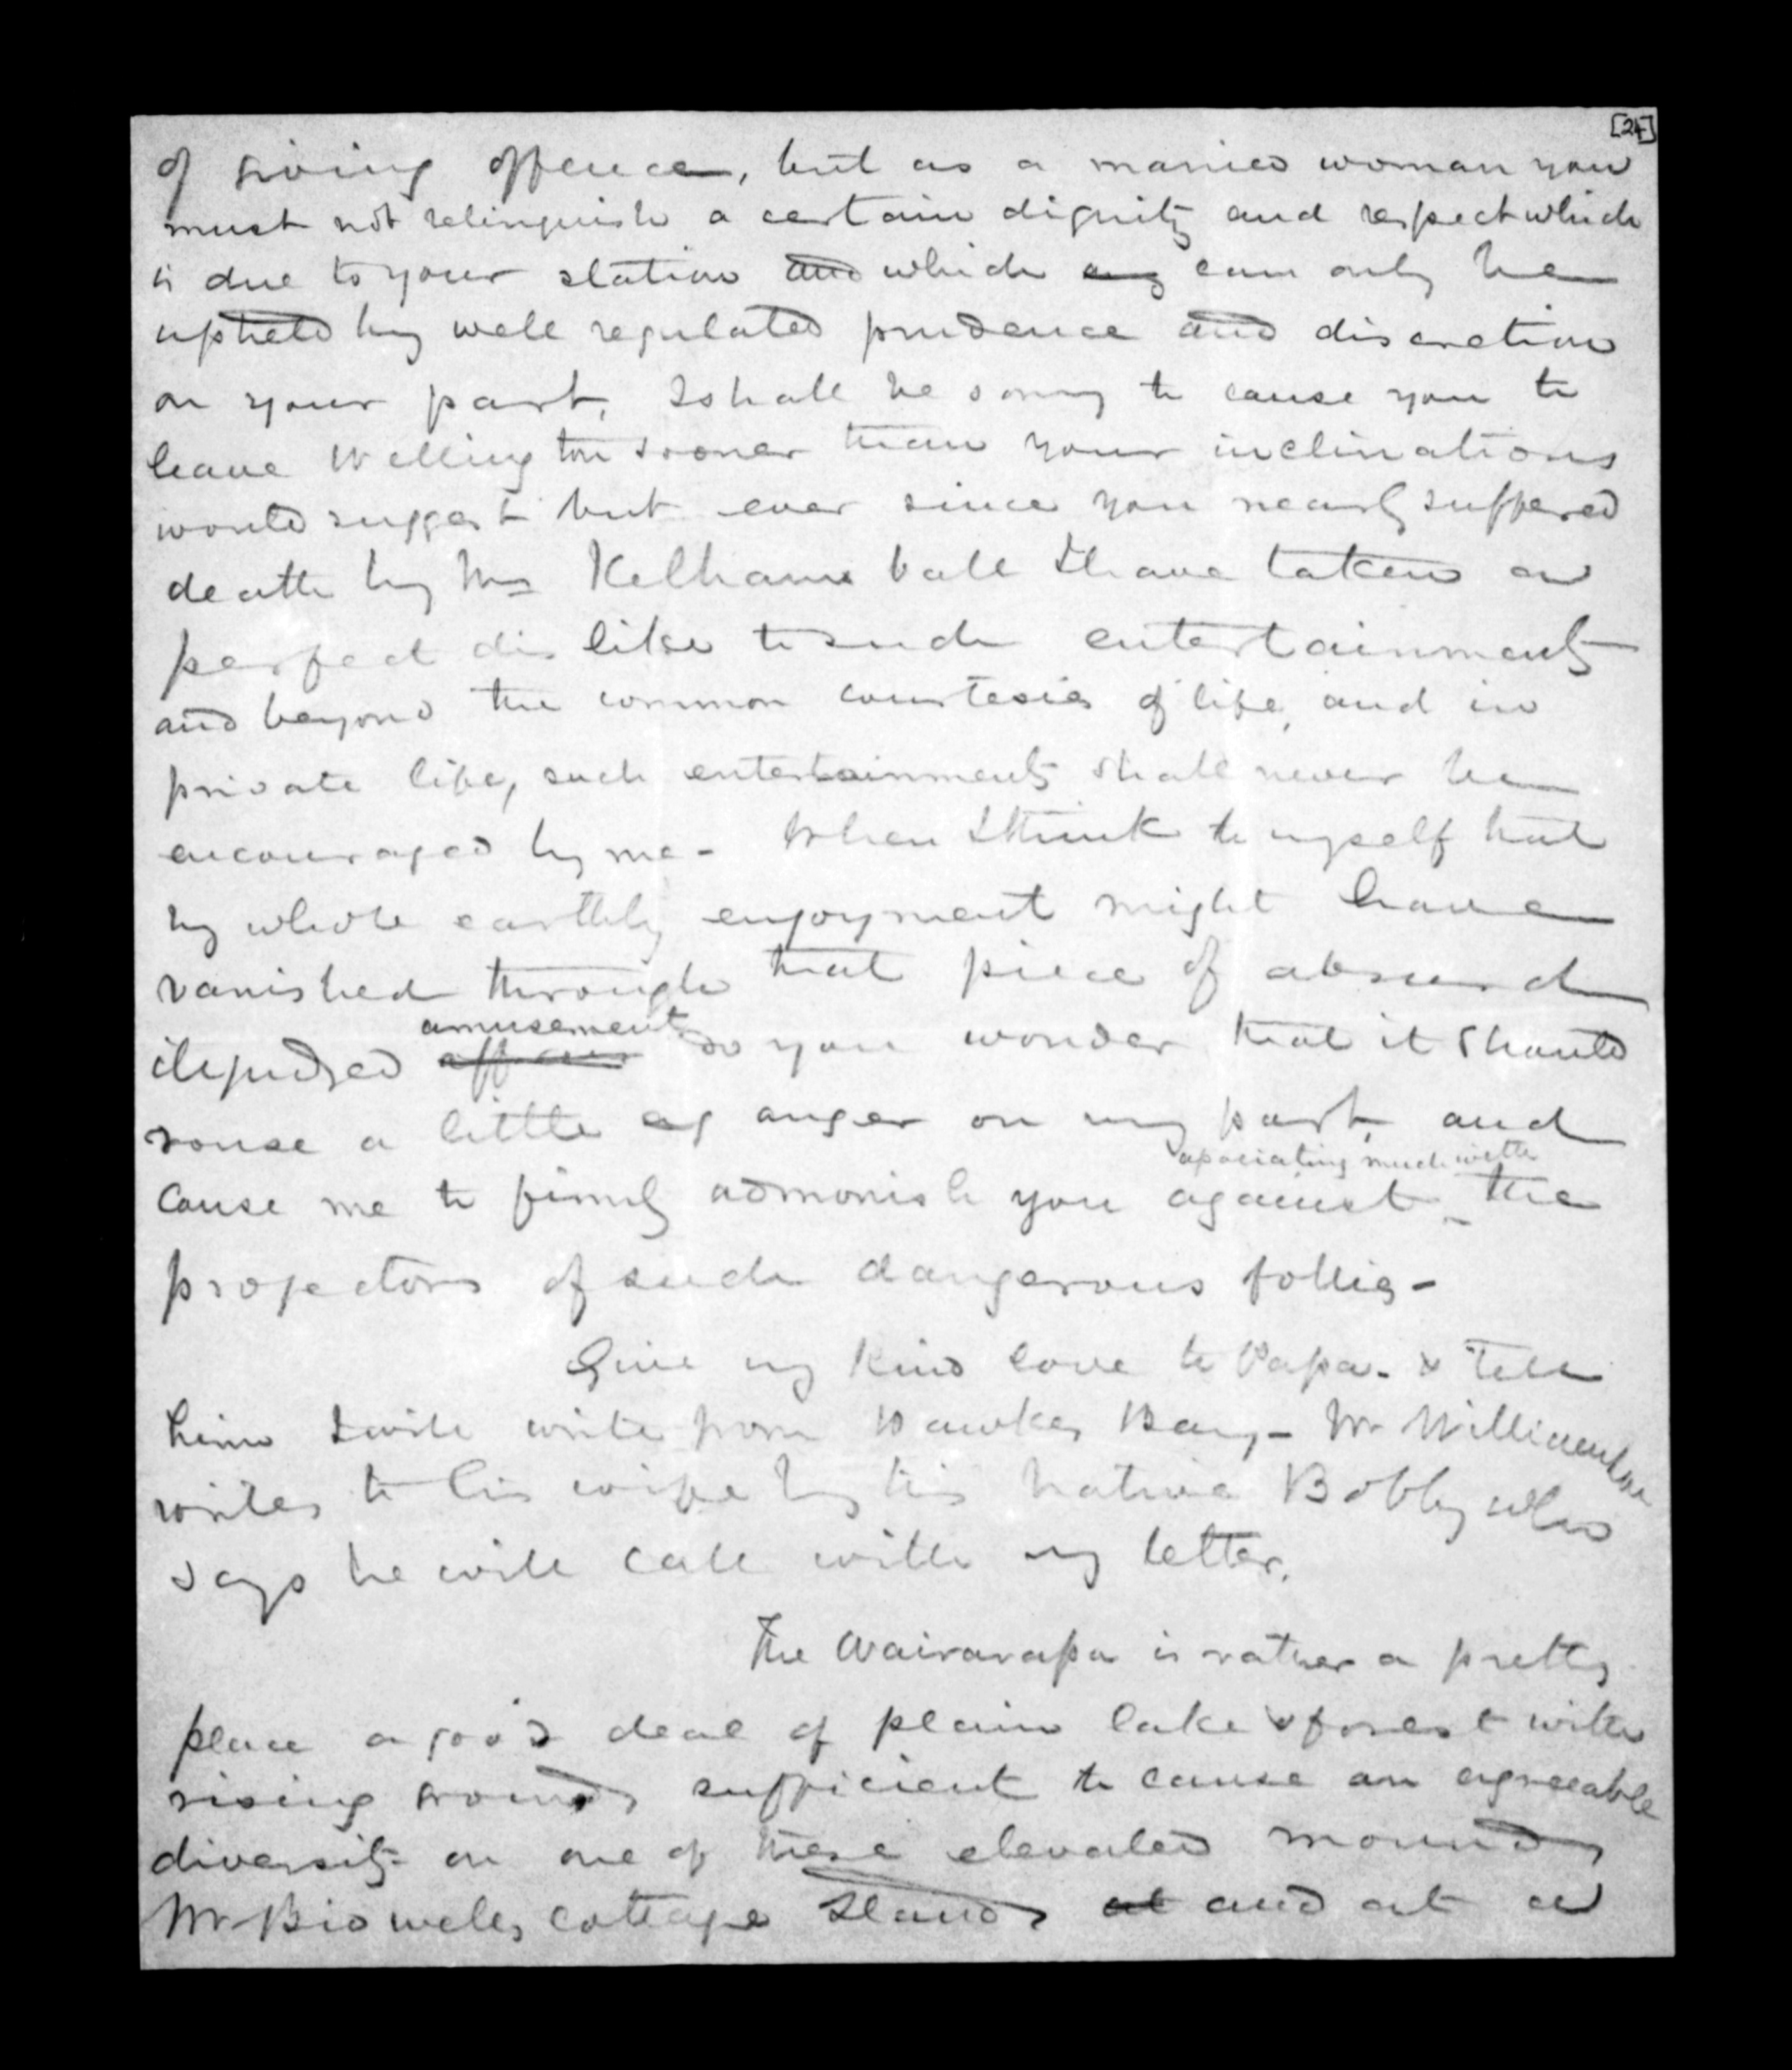 [24]
of giving offence, but as a married woman you
must not relinquish a certain dignity and respect which
is due to your station and which any can only be
upheld by well regulated prudence and discretion
on your part, I shall be sorry to cause you to
leave Wellington sooner than your inclinations
would suggest but ever since you nearly suffered
death by Mrs Kelhams ball I have taken a
perfect dislike to such entertainments
and beyond the common courtesies of life, and in
private life, such entertainments shall never be
encouraged by me - When I think to myself that
my whole earthly enjoyment might have
vanished through that piece of absurd
amusement
illjudged affair do you wonder that it should
rouse a little of anger on my part, and
associating much with
cause me to firmly admonish you against the
projectors of such dangerous follies -
Give my kind love to Papa - & tell
him I will write from Hawkes Bay - Mr Williamson
writes to his wife by his native Bobby who
says he will call with my letter.
The Wairarapa is rather a pretty
place a good deal of plain lake & forest with
rising grounds sufficient to cause an agreeable
diversity on one of these elevated mounds
Mr Bidwells cottage stands at and at a